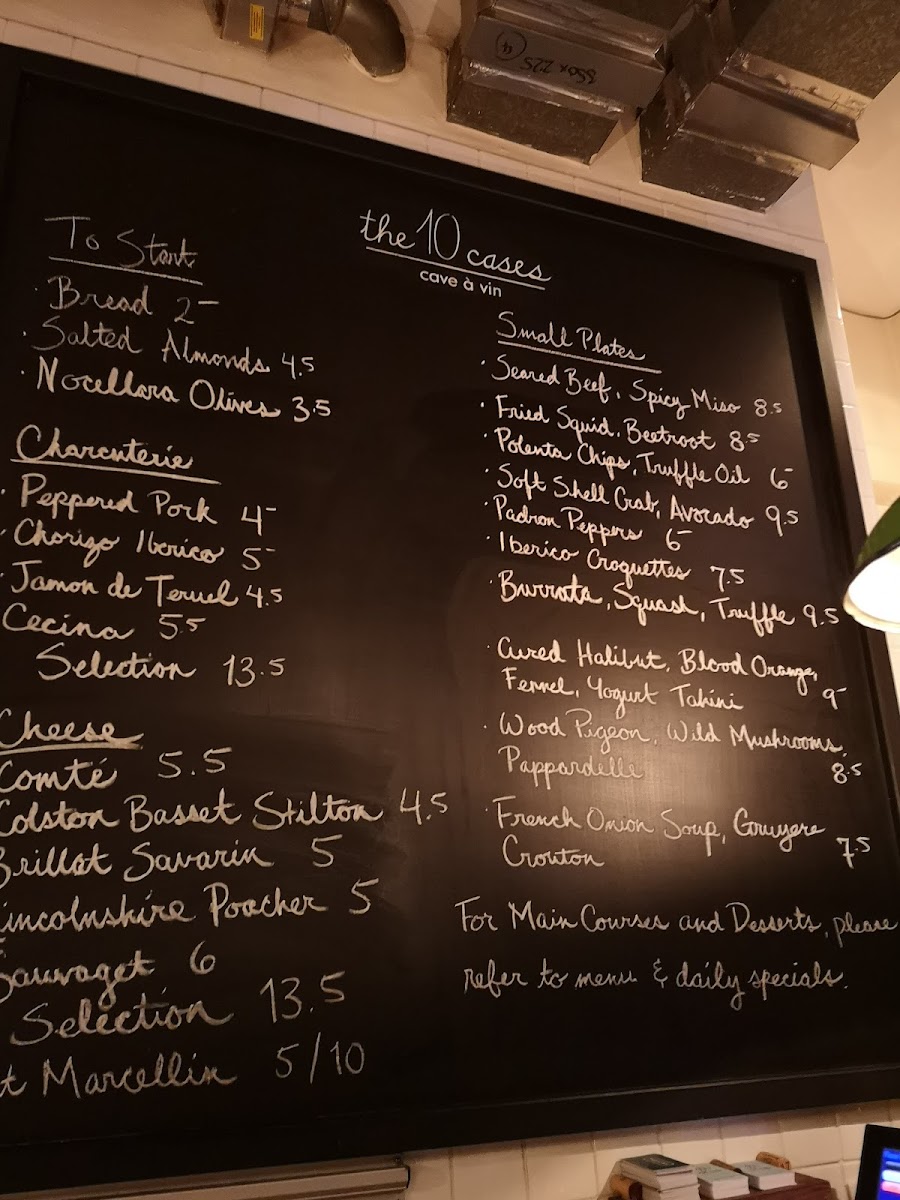 350 x 225
4
the 10 cases
cave à vin
To Start
· Bread 2-
· Salted Almonds 4.5
· Nocellara Olives 3.5
Charcuterie
· Peppered Pork 4-
· Chorizo Iberico 5-
· Jamon de Teruel 4.5
Cecina 5.5
Selection 13.5
Cheese
Comté 5.5
Colston Basset Stilton 4.5
Brillat Savarin 5
incolnshire Poacher 5
Sauvaget 6
Selection 13.5
t Marcellin 5/10
Small Plates
· Seared Beef, Spicy Miso 8.5
· Fried Squid, Beetroot 8.5
· Polenta Chips, Truffle Oil 6-
· Soft Shell Crab, Avocado 9.5
· Padron Peppers 6-
· Iberico Croquettes 7.5
· Burrata, Squash, Truffle 9.5
· Cured Halibut, Blood Orange,
Fennel, Yogurt Tahini 9-
· Wood Pigeon, Wild Mushrooms,
Pappardelle 8.5
· French Onion Soup, Gruyere
Crouton 7.5
For Main Courses and Desserts, please
refer to menu & daily specials.